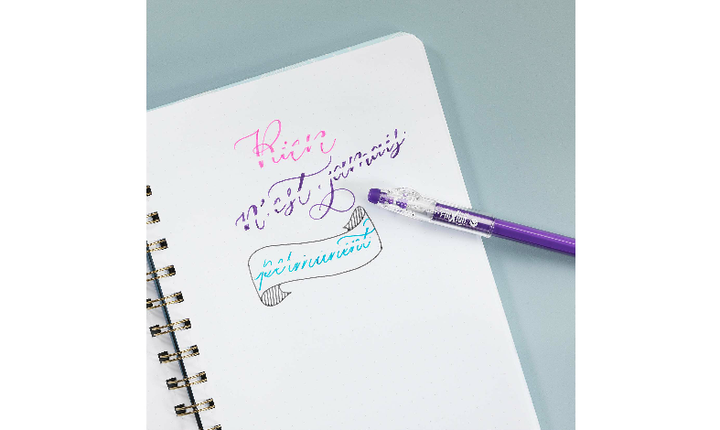 Rien
n'est jamais
permanent
FriXion